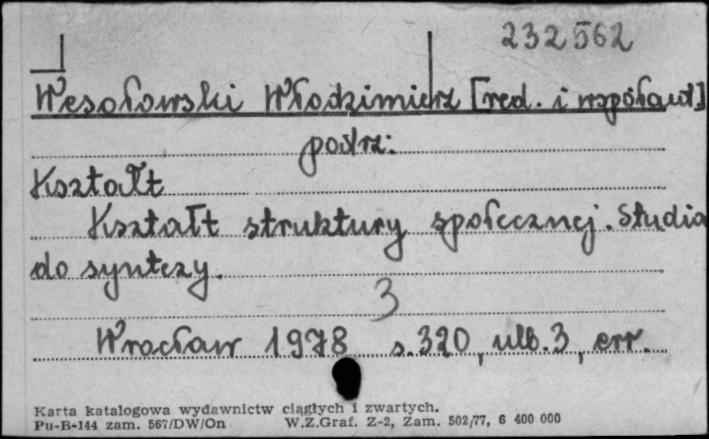 232562
Wesołowski Włodzimierz [red. i współaut]
patrz:
Kształt
Kształt struktury społecznej. Studia
do syntezy.
3
Wrocław 1978 s. 320, ulb. 3, err.
Karta katalogowa wydawnictw ciągłych i zwartych.
Pu-B-144 zam. 567/DW/On W.Z.Graf. Z-2, Zam. 502/77, 6 400 000